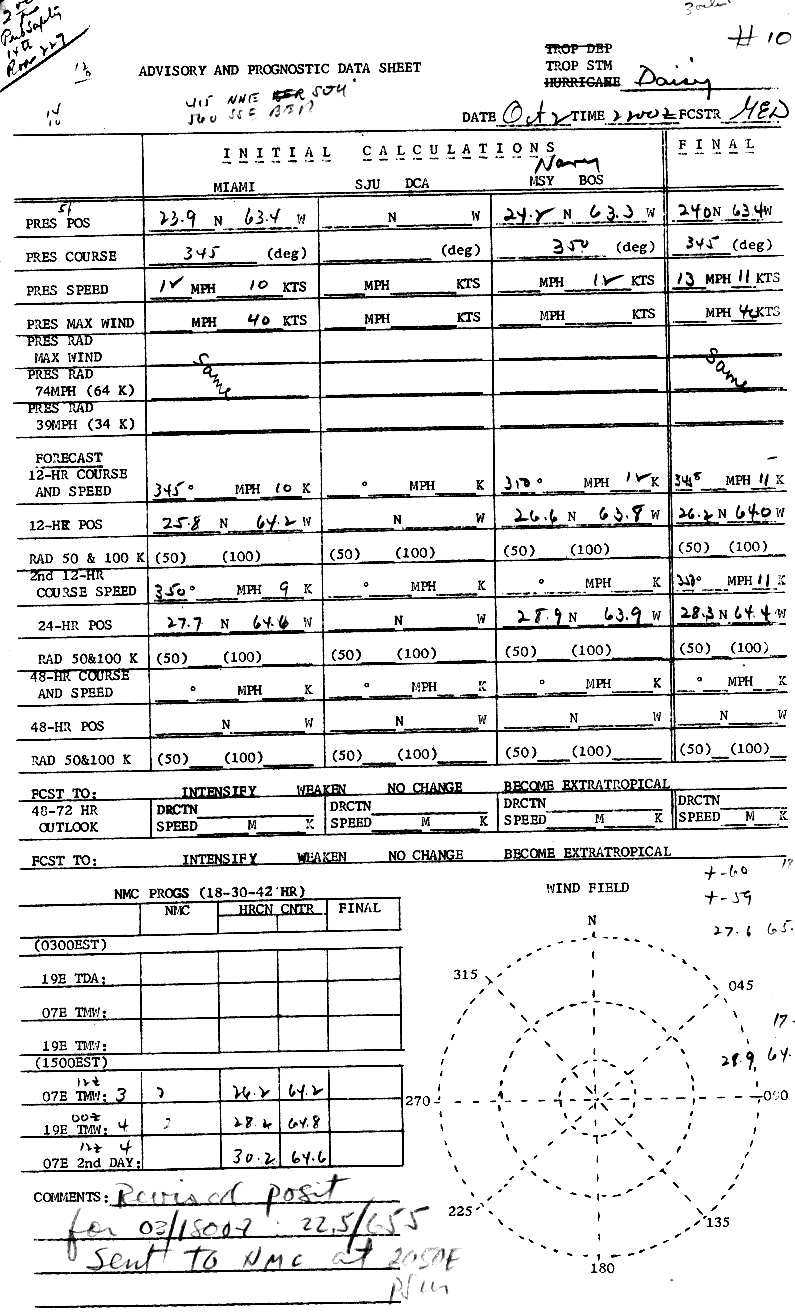 # 10
ADVISORY AND PROGNOSTIC DATA SHEET
TROP DEP
TROP STM
HURRICANE Daisy
DATE Oct 2 TIME 2200Z FCSTR MED
INITIAL CALCULATIONS FINAL
Navy
MIAMI SJU DCA MSY BOS
PRES POS 23.9 N 63.4 W N W 24.2 N 63.3 W 240 N 634 W
PRES COURSE 345 (deg) (deg) 350 (deg) 345 (deg)
PRES SPEED 12 MPH 10 KTS MPH KTS MPH 12 KTS 13 MPH 11 KTS
PRES MAX WIND MPH 40 KTS MPH KTS MPH KTS MPH 40 KTS
PRES RAD
MAX WIND Same Same
PRES RAD
74MPH (64 K)
PRES RAD
39MPH (34 K)
FORECAST
12-HR COURSE
AND SPEED 345° MPH 10 K ° MPH K 350° MPH 12 K 345 MPH 11 K
12-HR POS 25.8 N 64.2 W N W 26.6 N 63.8 W 26.2 N 640 W
RAD 50 & 100 K (50) (100) (50) (100) (50) (100) (50) (100)
2nd 12-HR
COURSE SPEED 350° MPH 9 K ° MPH K ° MPH K 350° MPH 11 K
24-HR POS 27.7 N 64.6 W N W 28.9 N 63.9 W 28.3 N 64.4 W
RAD 50&100 K (50) (100) (50) (100) (50) (100) (50) (100)
48-HR COURSE
AND SPEED ° MPH K ° MPH K ° MPH K ° MPH K
48-HR POS N W N W N W N W
RAD 50&100 K (50) (100) (50) (100) (50) (100) (50) (100)
FCST TO: INTENSIFY WEAKEN NO CHANGE BECOME EXTRATROPICAL
48-72 HR DRCTN DRCTN DRCTN DRCTN
OUTLOOK SPEED M K SPEED M K SPEED M K SPEED M K
FCST TO: INTENSIFY WEAKEN NO CHANGE BECOME EXTRATROPICAL
NMC PROGS (18-30-42 HR)
NMC HRCN CNTR FINAL
(0300EST)
19E TDA:
07E TMW:
19E TMW:
(1500EST)
12Z
07E TMW: 3 26.2 64.2
00Z
19E TMW: 4 28.2 64.8
12Z 4
07E 2nd DAY: 30.2 64.6
COMMENTS: Revised posit
for 03/1800Z : 22.5/655
Sent to NMC at
WIND FIELD
+-60
+-59
27.6 65.
N
315
045
17-
28.9 64.
270
090
225
135
180